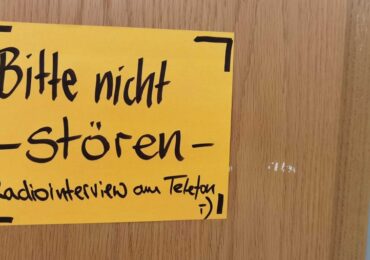 Bitte nicht
- stören -
Radiointerview am Telefon
;)